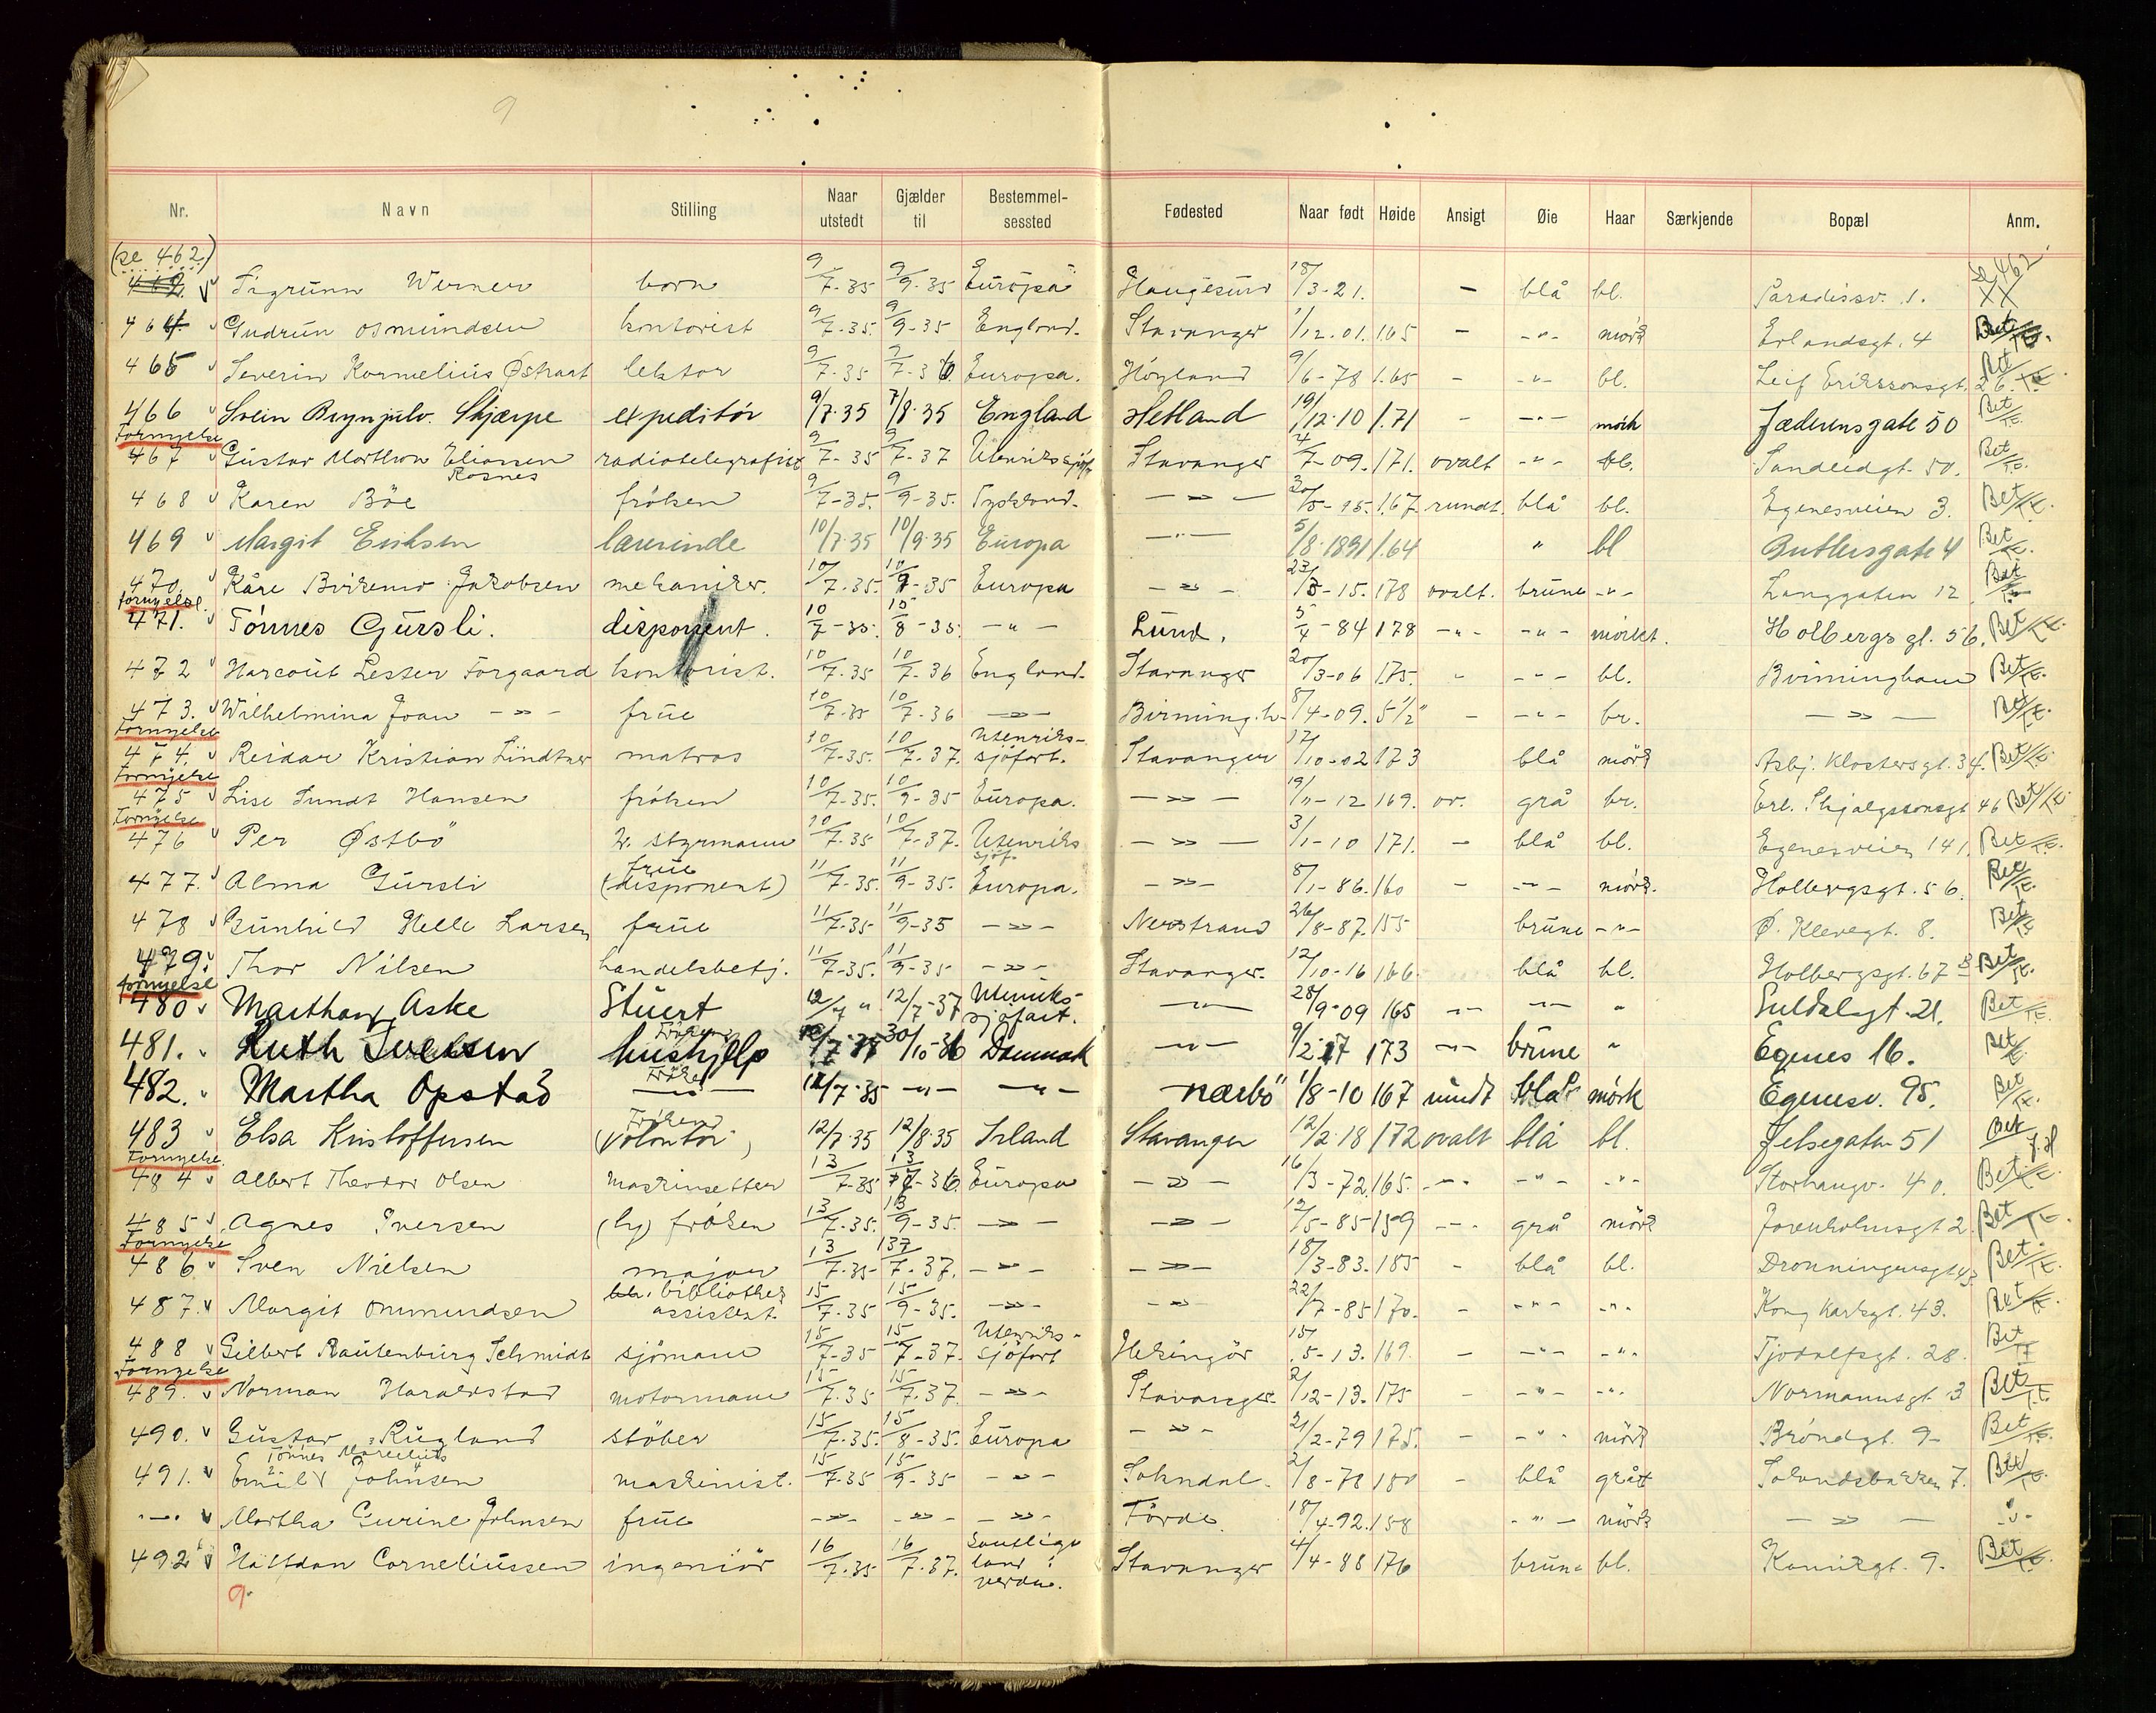 9
Nr. Navn Stilling Naar utstedt Gjælder til Bestemmel-sessted Fødested Naar født Høide Ansigt Øie Haar Særkjende Bopæl Anm.
(se 462) se 462
Sigrunn Werner born 9/7-35 9/9-35 Europa Haugesund 18/3-21. - blå bl. Paradissv. 1. XX
464 Gudrun Osmundsen kontorist 9/7-35. 9/9-35 England. Stavanger 1/12.01. 1.65 - -"- mørk Erlandsgt. 4 Bet
465 Severin Kornelius Østraat lektor 9/7-35 9/7-36 Europa. Høyland 9/6-78 1.65 - -"- bl. Leif Erikssonsgt. 26. Bet
466 Svein Brynjulv. Skjærpe expeditør 9/7.35 7/8.35 England Hetland 19/12.10 1.71 - -"- mørk Jæderensgate 50 Bet
Fornyelse
467 Gustav Morthon Eliassen Rosnes radiotelegrafist 9/7-35 9/7-37 Utenriks sjøf. Stavanger 4/7-09. 171. ovalt -"- bl. Sandeidgt. 50. Bet
468 Karen Böe fröken 9/7-35. 9/9-35. Tyskland. -"- 30/5-15. 1.67. rundt. blå bl. Egenesveien 3. Bet
469 Margit Eriksen lærerinde 10/7.35 10/9.35 Europa -"- 5/8.1891 1.64 " bl Butlersgate 4 Bet
470. Kåre Birkemo Jakobsen mekaniker. 10/7-35. 10/9-35 Europa -"- 23/5-15. 178 ovalt. brune -"- Langgaten 12 Bet
fornyelse.
471. Tönnes Gursli. disponent. 10/7-35. 10/8-35. -"- Lund. 5/4-84 178 -"- -"- mørkt. Holbergs gt. 56. Bet
472 Harcout Lester Torgaard kontorist. 10/7-35 10/7-36 England. Stavanger 20/3-06 175. - -"- bl. Birmingham Bet
473. Wilhelmina Joan -"- frue 10/7-35 10/7-36 -"- Birmingh. 8/4-09. 5 1/2" - -"- br. -"- Bet
Fornyelse
474. Reidar Kristian Lindtner matros 10/7-35. 10/7-37. Utenriks-sjöfart. Stavanger 17/10-02 173 blå mørk Asbj. Klostersgt. 34. Bet
Fornyelse
475 Lise Sundt Hansen fröken 10/7-35. 10/9-35 Europa. -"- 19/11-12 169. ov. grå br. Erl. Skjalgssonsgt 46 Bet
Fornyelse
476 Per Østbö 2. styrmann 10/7-35 10/7-37. Utenriks sjöf. -"- 3/1-10 171. - blå bl. Egenesveien 141. Bet
477. Alma Gursli frue (disponent) 11/7-35. 11/9-35. Europa. -"- 8/1-86. 160 - -"- mørk. Holbergsgt. 56. Bet
478 Gunhild Helle Larsen frue 11/7-35 11/9-35 -"- Nerstrand 26/8-87. 155 brune -"- Ø. Klevegt. 8. Bet
479. Thor Nilsen handelsbetj. 11/7-35. 11/9-35 -"- Stavanger. 12/10-16 166. blå bl. Holbergsgt. 67 B Bet
fornyelse
480 Marthon Aske Stuert 12/7 " 12/7-37 Utenriks-sjøfart. -"- 28/9-09 165 -"- -"- " Suldalsgt. 21. Bet
481. Ruth Iversen Fröken hushjelp 12/7.35 30/10-36 Danmark -"- 9/2.17 173 -"- brune " Egenes 16. Bet
482. Martha Opstad Fröken -"- 12/7-35 -"- -"- Nærbö 1/8-10 167 rundt blå mörk Egenesv. 95. Bet
483 Elsa Kristoffersen Fröken (Volontör) 12/7.35 12/8.35 Irland Stavanger 12/2.18 172 ovalt blå bl. Jelsegaten 51 Bet
Fornyelse
484 Albert Theodor Olsen maskinsetter 13/7-35 13/7-36. Europa -"- 16/3-72. 165. -"- -"- -"- Storhaugv. 40. Bet
485 Agnes Iversen fröken 13/7-35. 13/9-35. -"- -"- 12/5-85 159 -"- grå mørk Bet
Fornyelse
486 Sven Nielsen major 13/7-35 13/7-37. -"- -"- 18/3-83. 185 - blå bl. Dronningensgt 43 Bet
487. Margit Ommundsen bibliothek assistent. 15/7-35 15/9-35. -"- -"- 22/7-85 170. - -"- -"- Kong Karlsgt. 43. Bet
488 Gilbert Rautenburg Schmidt sjömann 15/7-35 15/7-37. Utenriks-sjöfart Helsingör 15/5-13. 169. - -"- -"- Tjodolfsgt. 28. Bet
Fornyelse
489. Norman Haraldstad motormann 15/7.35 15/7.37. -"- Stavanger. 2/12-13. 175 - -"- -"- Normannsgt. 3 Bet
490. Gustav Rugland stöber 15/7-35. 15/8-35. Europa -"- 21/2-79 175. - -"- mørk Bröndgt. 9- Bet
491. Emil Tönnes Marcelius Johnsen maskinist. 15/7-35 15/9-35 -"- Sokndal. 2/8-78 180 - blå grått Solundsbakken 7. Bet
-"- Martha Gurine Johnsen frue -"- -"- -"- Förde. 18/4-92. 158 -"- mørk -"- -"-
492 Halfdan Corneliussen ingeniör 16/7.35 16/7.37. Samtlige land i verden. Stavanger 4/4-88 176 brune bl. Kannikgt. 9. Bet
9.